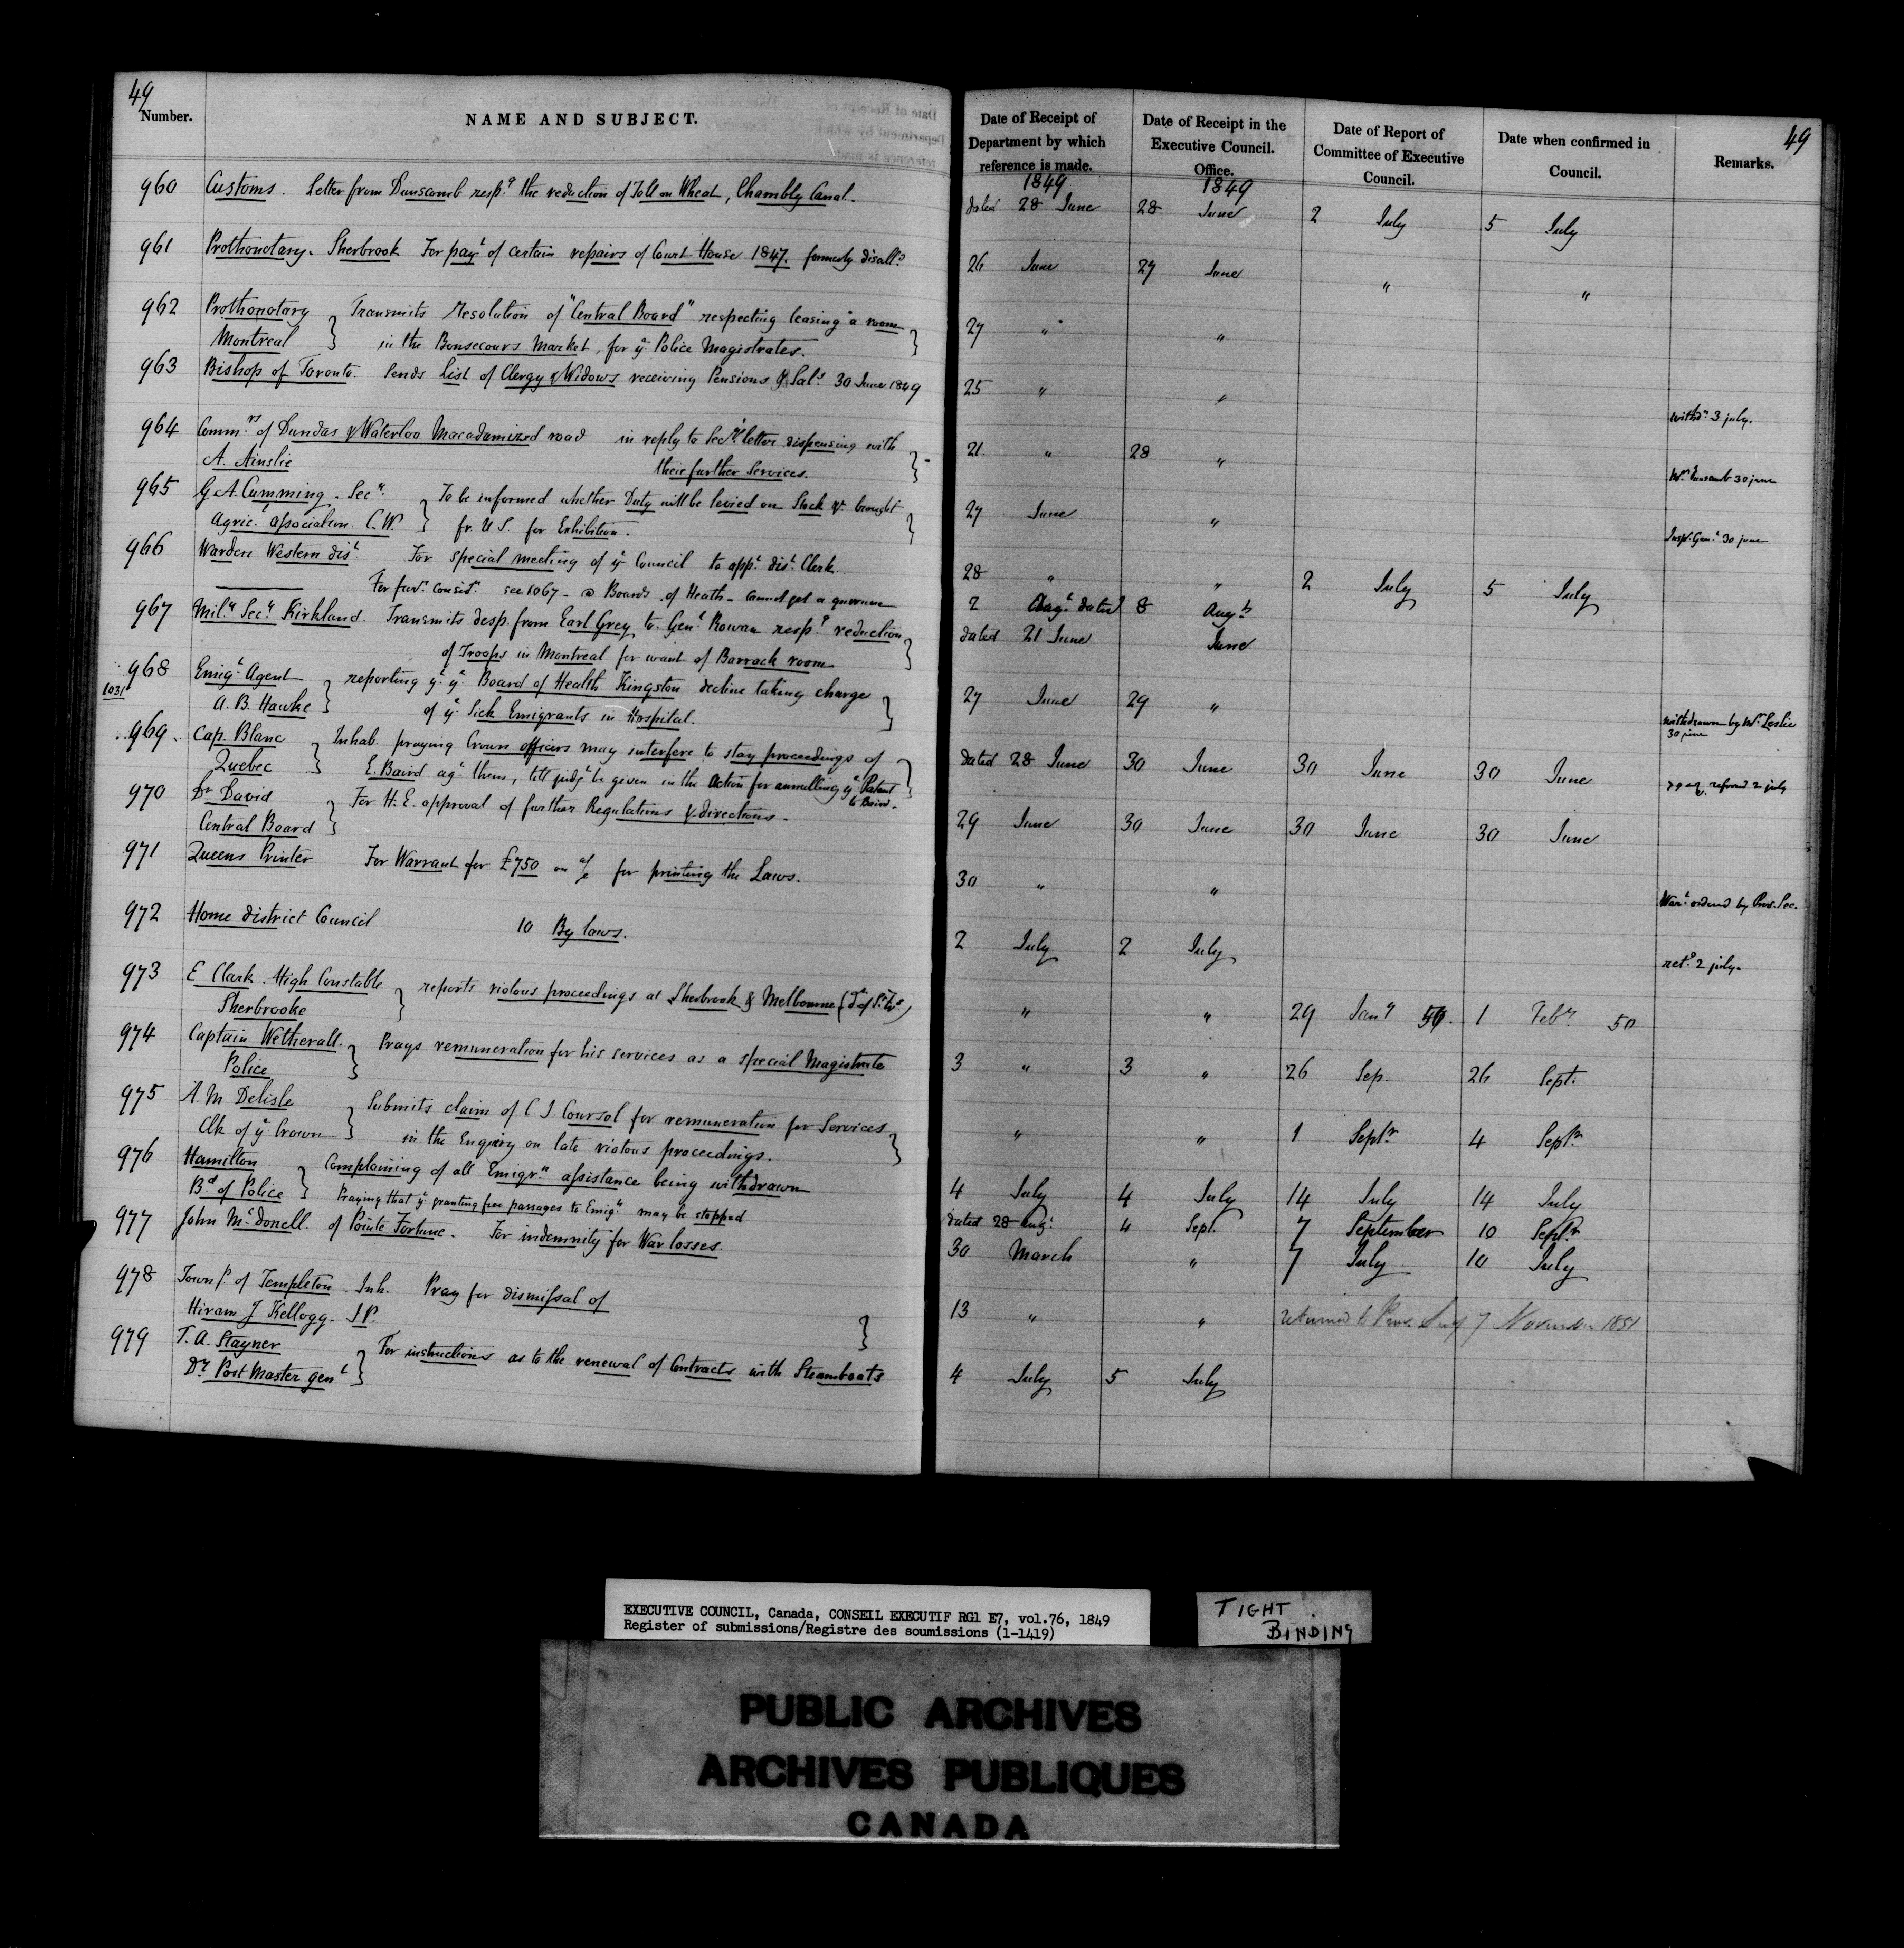 49
Number.
NAME AND SUBJECT.
960 Customs. Letter from Dunscomb resp.g the reduction of Toll on Wheat, Chambly Canal.
961 Prothonotary. Sherbrook For pay.t of certain repairs of Court House 1847. formerly disall.d
962 Prothonotary Transmits Resolution of "Central Board" respecting leasing a room
Montreal in the Bonsecours Market, for ye Police Magistrates.
963 Bishop of Toronto. Sends list of Clergy & Widows receiving Pensions & Sal.s 30 June 1849
964 Comm.rs of Dundas & Waterloo Macadamized road in reply to Sec.ys letter dispensing with
A. Ainslie their further Services.
965 G A. Cumming. Secy. To be informed whether Duty will be levied on Stock &c. brought
Agric.l Association. C.W. fr. U S. for Exhibition.
966 Warden Western dist. For special meeting of ye Council to app.t dis.t Clerk
For furr. consid.n see 1067 - Boards of Heath - cannot get a quorum
967 Mily. Secy. Kirkland. Transmits desp. from Earl Grey to Gen.l Rowan resp.g reduction
of Troops in Montreal for want of Barrack room
968 Emig.t Agent reporting yt. ye Board of Health Kingston decline taking charge
1031 A. B. Hawke of ye Sick Emigrants in Hospital.
969. Cap. Blanc Inhab. praying Crown officers may interfere to stay proceedings of
Quebec E. Baird ag.t them, till judg.t be given in the Action for annulling ye Patent
to Baird.
970 Dr David For H. E. approval of further Regulations & directions.
Central Board
971 Queens Printer For Warrant for £750 on a/c for printing the Laws.
972 Home district Council 10 By laws.
973 E Clark. High Constable reports riotous proceedings at Sherbrook & Melbourne
Sherbrooke
974 Captain Wetherall. Prays remuneration for his services as a special Magistrate
Police
975 A. M Delisle Submits claim of C. J. Coursol for remuneration for Services
Clk of ye Crown in the Enquiry on late riotous proceedings.
976 Hamilton Complaining of all Emigr.n assistance being withdrawn
Bd of Police Praying that ye granting free passages to Emig.ts may be stopped
977 John McDonell. of Pointe Fortune. For indemnity for War losses.
978 Townp. of Templeton. Inh. Pray for dismissal of
Hiram J Kellogg. J.P.
979 T. A. Stayner For instructions as to the renewal of Contracts with Steamboats
Dy Post Master gen.l
49
Date of Receipt of Department by which reference is made.
Date of Receipt in the Executive Council. Office.
Date of Report of Committee of Executive Council.
Date when confirmed in Council.
Remarks.
1849 1849
dated 28 June 28 June 2 July 5 July
26 June 27 June " "
27 " "
25 " " withdn 3 july.
21 " 28 " Mr Dunscomb 30 june
27 June " Insp. Gen.l 30 june
28 " " 2 July 5 July
2 Aug.t dated 8 Aug.t
dated 21 June June
27 June 29 " withdrawn by Mr Leslie
30 june
dated 28 June 30 June 30 June 30 June
29 June 30 June 30 June 30 June
30 " " War.t ordered by Prov. Sec.
2 July 2 July ret.d 2 july.
" " 29 Jany 50. 1 Feby. 50
3 " 3 " 26 Sep. 26 Sept.
" " 1 Septr 4 Septr
4 July 4 July 14 July 14 July
dated 28 Aug.t 4 Sept. 7 September 10 Septr
30 March " 7 July 10 July
13 " " returned to Prov. Secy 7 November 1851
4 July 5 July
EXECUTIVE COUNCIL, Canada, CONSEIL EXECUTIF RG1 E7, vol.76, 1849
Register of submissions/Registre des soumissions (1-1419)
TIGHT
BINDING
PUBLIC ARCHIVES
ARCHIVES PUBLIQUES
CANADA